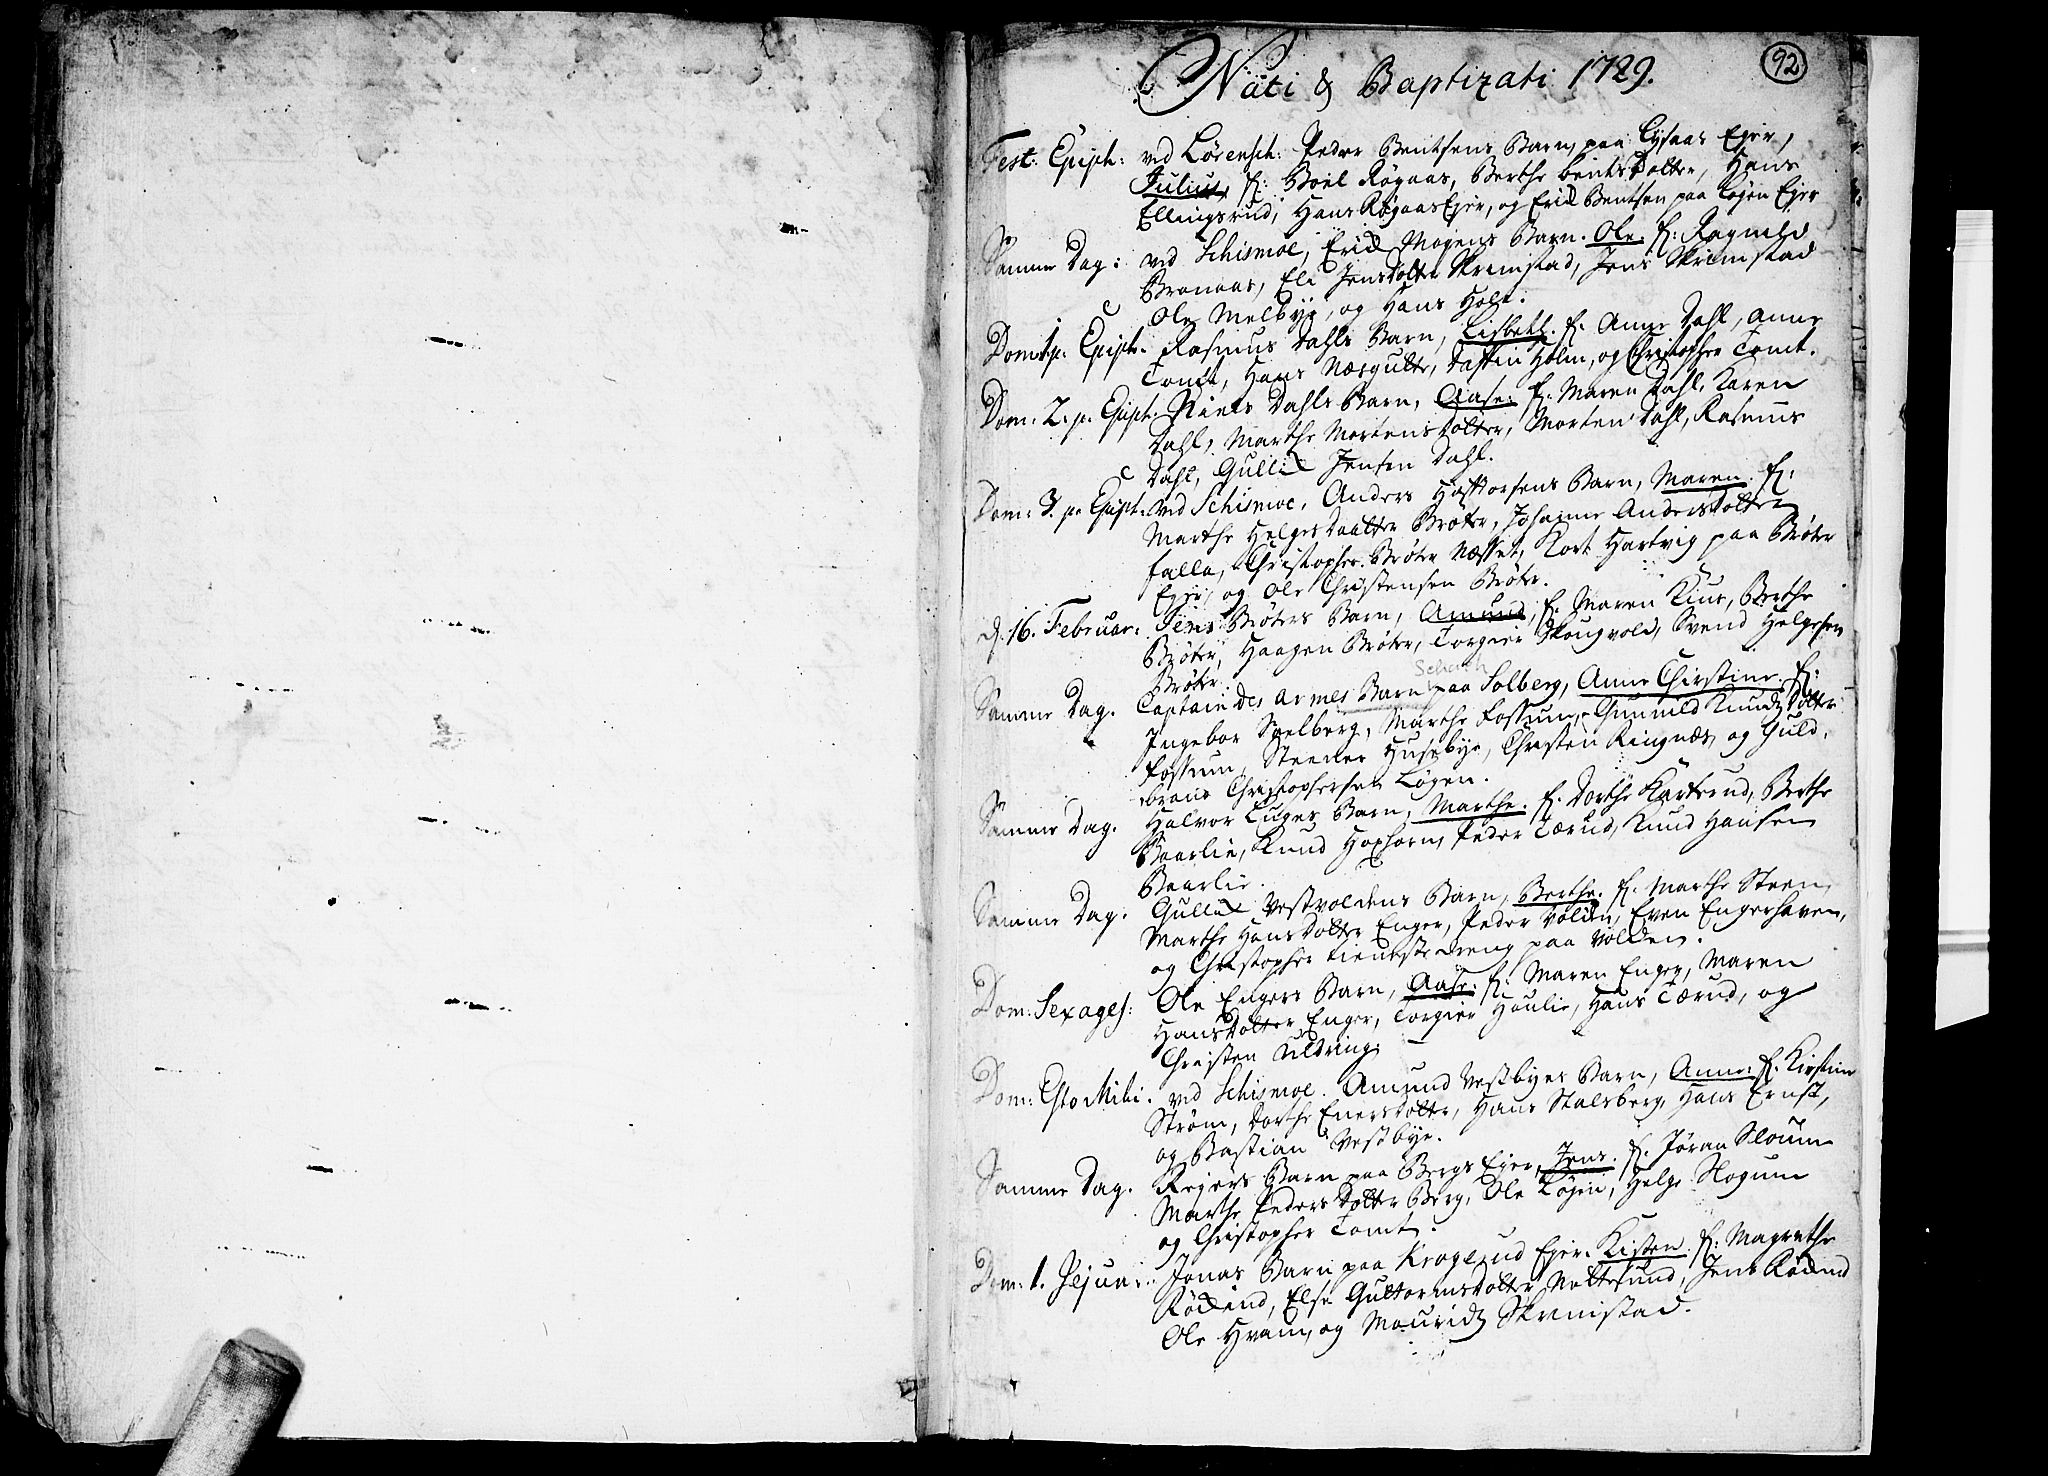 92
Nati & Baptizati 1729.
Fest: Epiph: ved Lørensch: Peder Bentsens Barn, paa Eger,
Julius, f: Boel Røgaas, Berthe bentsDotter, Hans
Ellingsrud, Hans Røgaas Eger, og Erich Bentsen paa Løgen Eger
Samme Dag: ved Schismoe, Erich Mogens Barn. Ole. f: Ragnild
Branaas, Eli JensDotter Skrimstad, Jens Skrimstad
Ole Melbye, og Hans Holt.
Dom: 1. p. Epiph. Rasmus Dahls Barn, Lisbeth. f. Anne Dahl, Anne
Tomt, Hans Holm, og Christopher Tomt.
Dom: 2. p. Epiph. Niels Dahls Barn, Aase: f. Maren Dahl, Karen
Dahl, Marthe MortensDotter, Morten Dahl, Rasmus
Dahl, Gullich Jensen Dahl.
Dom: 3. p. Epiph: ved Schismoe, Anders Barn, Maren. f:
Marthe HelgesDaatter Brøter, Johanne AndersDotter
falla, Christopher Brøter Næsset, Kort Hartvig paa Brøter
Eger, og Ole Christensen Brøter.
d. 16. Februar: Jens Brøters Barn, Amund, f. Maren Kius, Berthe
Brøter, Haagen Brøter, Torgier Skougvold, Svend Helgesen
Brøter.
Samme Dag. Captain des Armes Barn paa Solberg, Anne Chirstine. f:
Ingebor Soelberg, Marthe Fossum, Gunnild KnudzDotter
Fossum, Steener Husebye, Christen Ringnæs, og Guld-
brand Christophersen Løgen.
Samme Dag. Halvor Barn, Marthe. f. Dorthe Karterud, Berthe
Baarlie, Knud Hoxhorn, Peder Tærud, Knud Hansen
Baarlie.
Samme Dag. Gullich Vestvoldens Barn, Berthe. f. Marthe Steen,
Marthe HansDotter Enger, Peder Volden, Even Engerhaven,
og Christopher tienestedreng paa Volden.
Dom: Sexages: Ole Engers Barn, Aase: f: Maren Enger, Maren
HansDotter Enger, Torgier Haulie, Hans Tærud, og
Christen Uldring.
Dom: Esto Mihi. ved Schismoe. Amund Vestbyes Barn, Anne: f. Kirstine
Strøm, Dorthe EnersDotter, Hans Stalsberg, Hans Ernst,
og Bastian Vestbye.
Samme Dag. Rejers Barn paa Bergs Eger, Jens. f. Jøran Sloum
Marthe PedersDotter Berg, Ole Løgen, Helge Slogum
og Christopher Tomt.
Dom: 1. Jejun: Jonas Barn paa Kragerud Eger. Kisten. f: Magrethe
Rødsund, Else GuttormsDotter Nettesund, Jens Rødsund
Ole Hvam, og Mouridz Skrimstad.